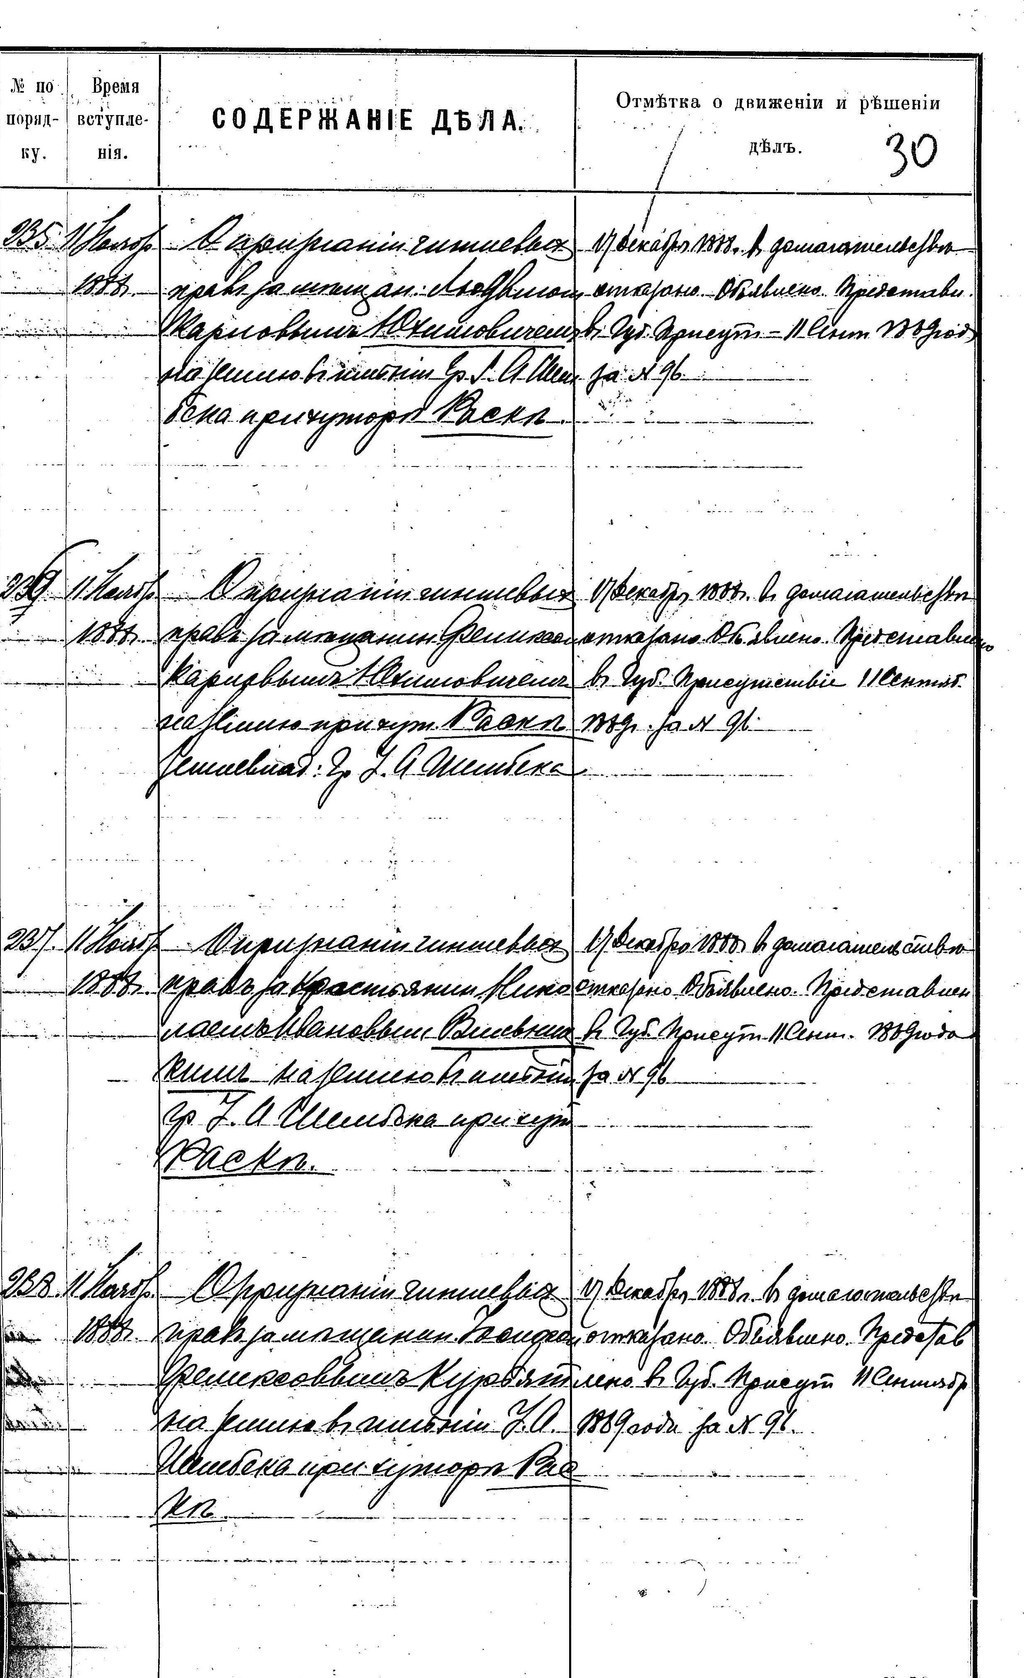 № по поряд-ку.
Время вступле-нія.
СОДЕРЖАНІЕ ДѢЛА.
Отмѣтка о движеніи и рѣшеніи дѣлъ.
30
235. 11 Ноябр. 1888.
О признаніи чиншевых
правъ за мѣщан. Людвигом
Карповымъ Юхимовичемъ
на землю въ имѣніи Гр.
бека при хуторѣ Раскѣ.
17 Декабр. 1888. въ домагательствѣ
отказано. Объявлено. Представл.
въ Губ. Присут. – 11 Сент. 1889 года
за № 96
236 11 Ноябр. 1888.
О признаніи чиншевых
правъ за мѣщанин. Феликсом
Карповымъ Юхимовичемъ
на землю при хут. Раскѣ
землевлад: Гр. І. А Шембека
17 Декабр. 1888. въ домагательствѣ
отказано Объявлено. Представлено
въ Губ. Присутствіе 11 Сентяб.
1889г. за № 96.
237. 11 Ноябр 1888.
О признаніи чиншевых
правъ за Крестьянин. Нико
лаемъ Ивановым.
на землю въ имѣніи
гр І. А Шембека при хут
Раскѣ.
17 Декабр 1888. въ домагательствѣ
отказано Объявлено. Представлен
въ Губ. Присут 11 Сент. 1889 года
за № 96
238. 11 Ноябр. 1888.
О признаніи чиншевых
правъ за мѣщанин.
Феликсовымъ Курбят
на землю въ имѣніи І. А.
Шембека при хуторѣ Рас
кѣ.
17 Декабр. 1888 г. въ домагательствѣ
отказано. Объявлено. Представ
лено въ Губ. Присут 11 Сентябр
1889 года за № 96.